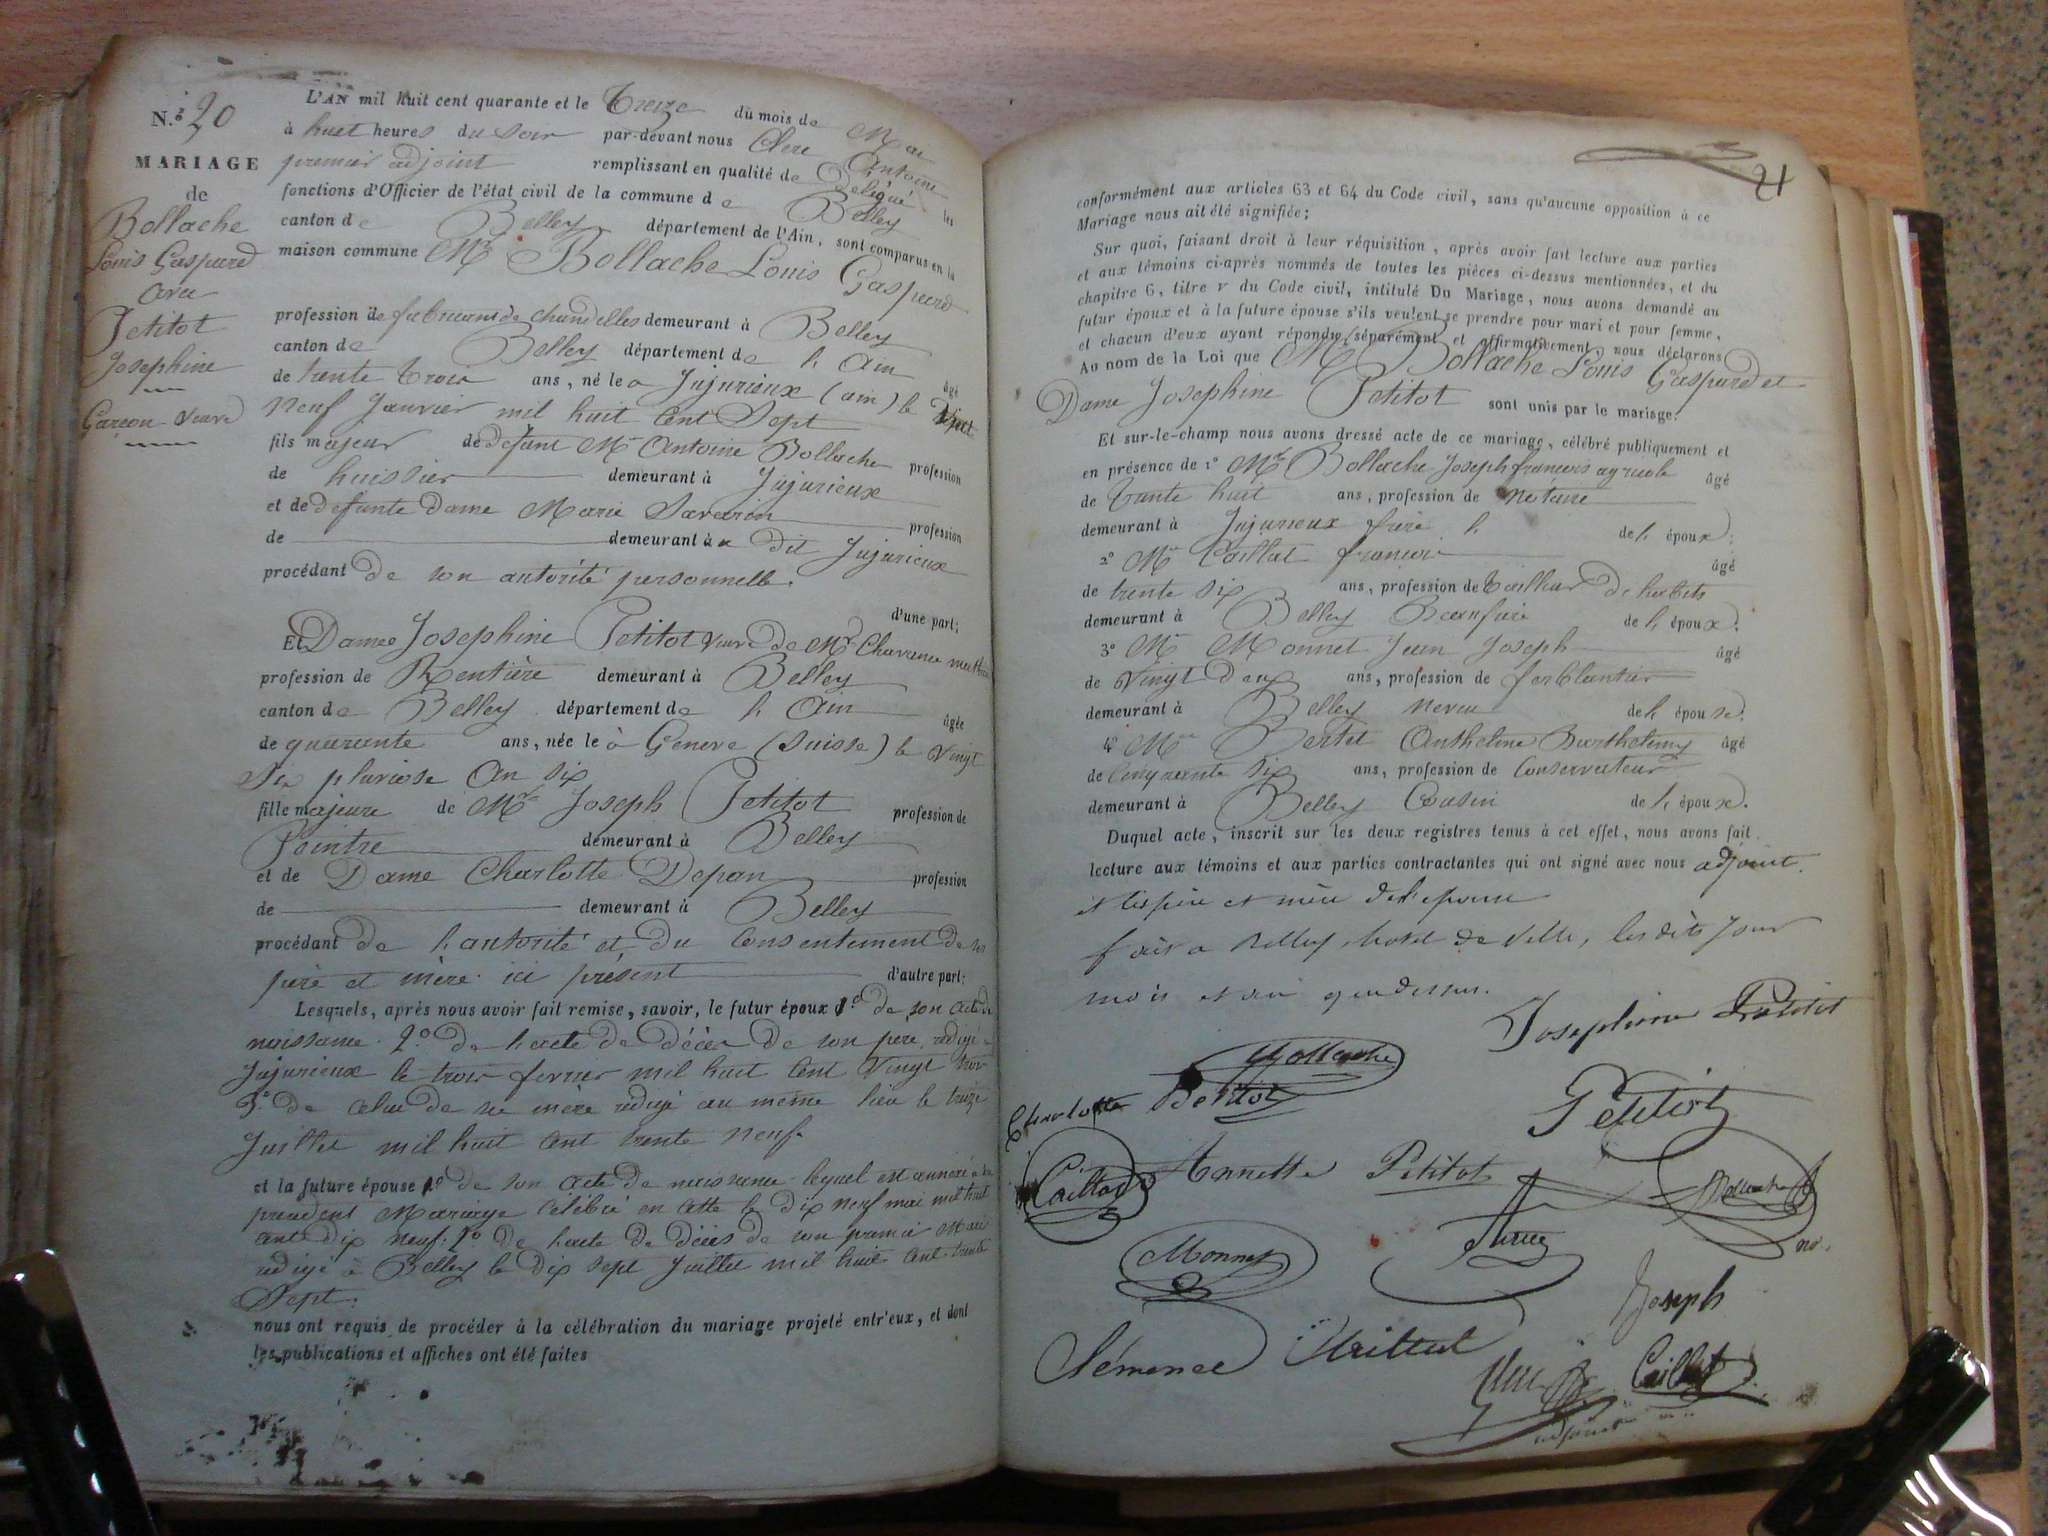 N.º 20
MARIAGE
de
Bollache
Louis Gaspard
avec
Petitot
Josephine
Garçon veuve
L'AN mil huit cent quarante et le treize du mois de Mai
à huit heures du soir par-devant nous Clerc Antoine
premier adjoint remplissant en qualité de Délégué les
fonctions d'Officier de l'état civil de la commune de Belley
canton de Belley département de l'Ain, sont comparus en la
maison commune Mr Bollache Louis Gaspard
profession de fabricant de chandelles demeurant à Belley
canton de Belley département de l'Ain âgé
de trente trois ans, né le à Jujurieux (ain) le
neuf Janvier mil huit cent sept
fils majeur de defunt Mr Antoine Bollache profession
de huissier demeurant à Jujurieux
et de defunte Dame Marie Savarin profession
de demeurant à dit Jujurieux
procédant de son autorité personnelle.
d'une part;
Et Dame Josephine Petitot veuve de Mr
profession de Rentière demeurant à Belley
canton de Belley département de l'Ain âgée
de quarante ans, née le à Geneve (Suisse) le vingt
six pluviose an six
fille majeure de Mr Joseph Petitot profession de
Peintre demeurant à Belley
et de Dame Charlotte Depan profession
de demeurant à Belley
procédant de l'autorité et du Consentement de ses
père et mère ici présent d'autre part;
Lesquels, après nous avoir fait remise, savoir, le futur époux 1º de son acte de
naissance. 2º de l'acte de décès de son pere, redigé à
Jujurieux le trois fevrier mil huit cent vingt trois
3º de celui de sa mère redigé au même lieu le treize
Juillet mil huit cent trente neuf.
et la future épouse 1º de son acte de naissance lequel est annexé à son
précédent Mariage célébré en cette le dix neuf mai mil huit
cent dix neuf. 2º de l'acte de décès de son premier Mari
redigé à Belley le dix sept Juillet mil huit cent trente
Sept.
nous ont requis de procéder à la célébration du mariage projeté entr'eux, et dont
les publications et affiches ont été faites
21
conformément aux articles 63 et 64 du Code civil, sans qu'aucune opposition à ce
Mariage nous ait été signifiée;
Sur quoi, faisant droit à leur réquisition, après avoir fait lecture aux parties
et aux témoins ci-après nommés de toutes les pièces ci-dessus mentionnées, et du
chapitre 6, titre v du Code civil, intitulé Du Mariage, nous avons demandé au
futur époux et à la future épouse s'ils veulent se prendre pour mari et pour femme,
et chacun d'eux ayant répondu séparément et affirmativement, nous déclarons
Au nom de la Loi que Mr Bollache Louis Gaspard et
Dame Josephine Petitot sont unis par le mariage.
Et sur-le-champ nous avons dressé acte de ce mariage, célébré publiquement et
en présence de 1º Mr Bollache Joseph françois agricole âgé
de trente huit ans, profession de notaire
demeurant à Jujurieux frère de l'époux;
2º Mr Caillat françois âgé
de trente six ans, profession de tailleur de habits
demeurant à Belley Beaufrère de l'époux.
3º Mr Monnet Jean Joseph âgé
de vingt deux ans, profession de ferblantier
demeurant à Belley neveu de l'épouse.
4º Mr Bertet Anthelme Barthelemy âgé
de Cinquante six ans, profession de Conservateur
demeurant à Belley Cousin de l'épouse.
Duquel acte, inscrit sur les deux registres tenus à cet effet, nous avons fait
lecture aux témoins et aux parties contractantes qui ont signé avec nous adjoint.
et les père et mère de l'epouse
fait a Belley, hotel de ville, les dits jour
mois et an que dessus.
Josephine Petitot
Bollache
Charlotte Petitot
Petitot
Caillat
Annette Petitot
Bollache
no.
Monnet
Joseph
Caillat
Clémence
adjoint